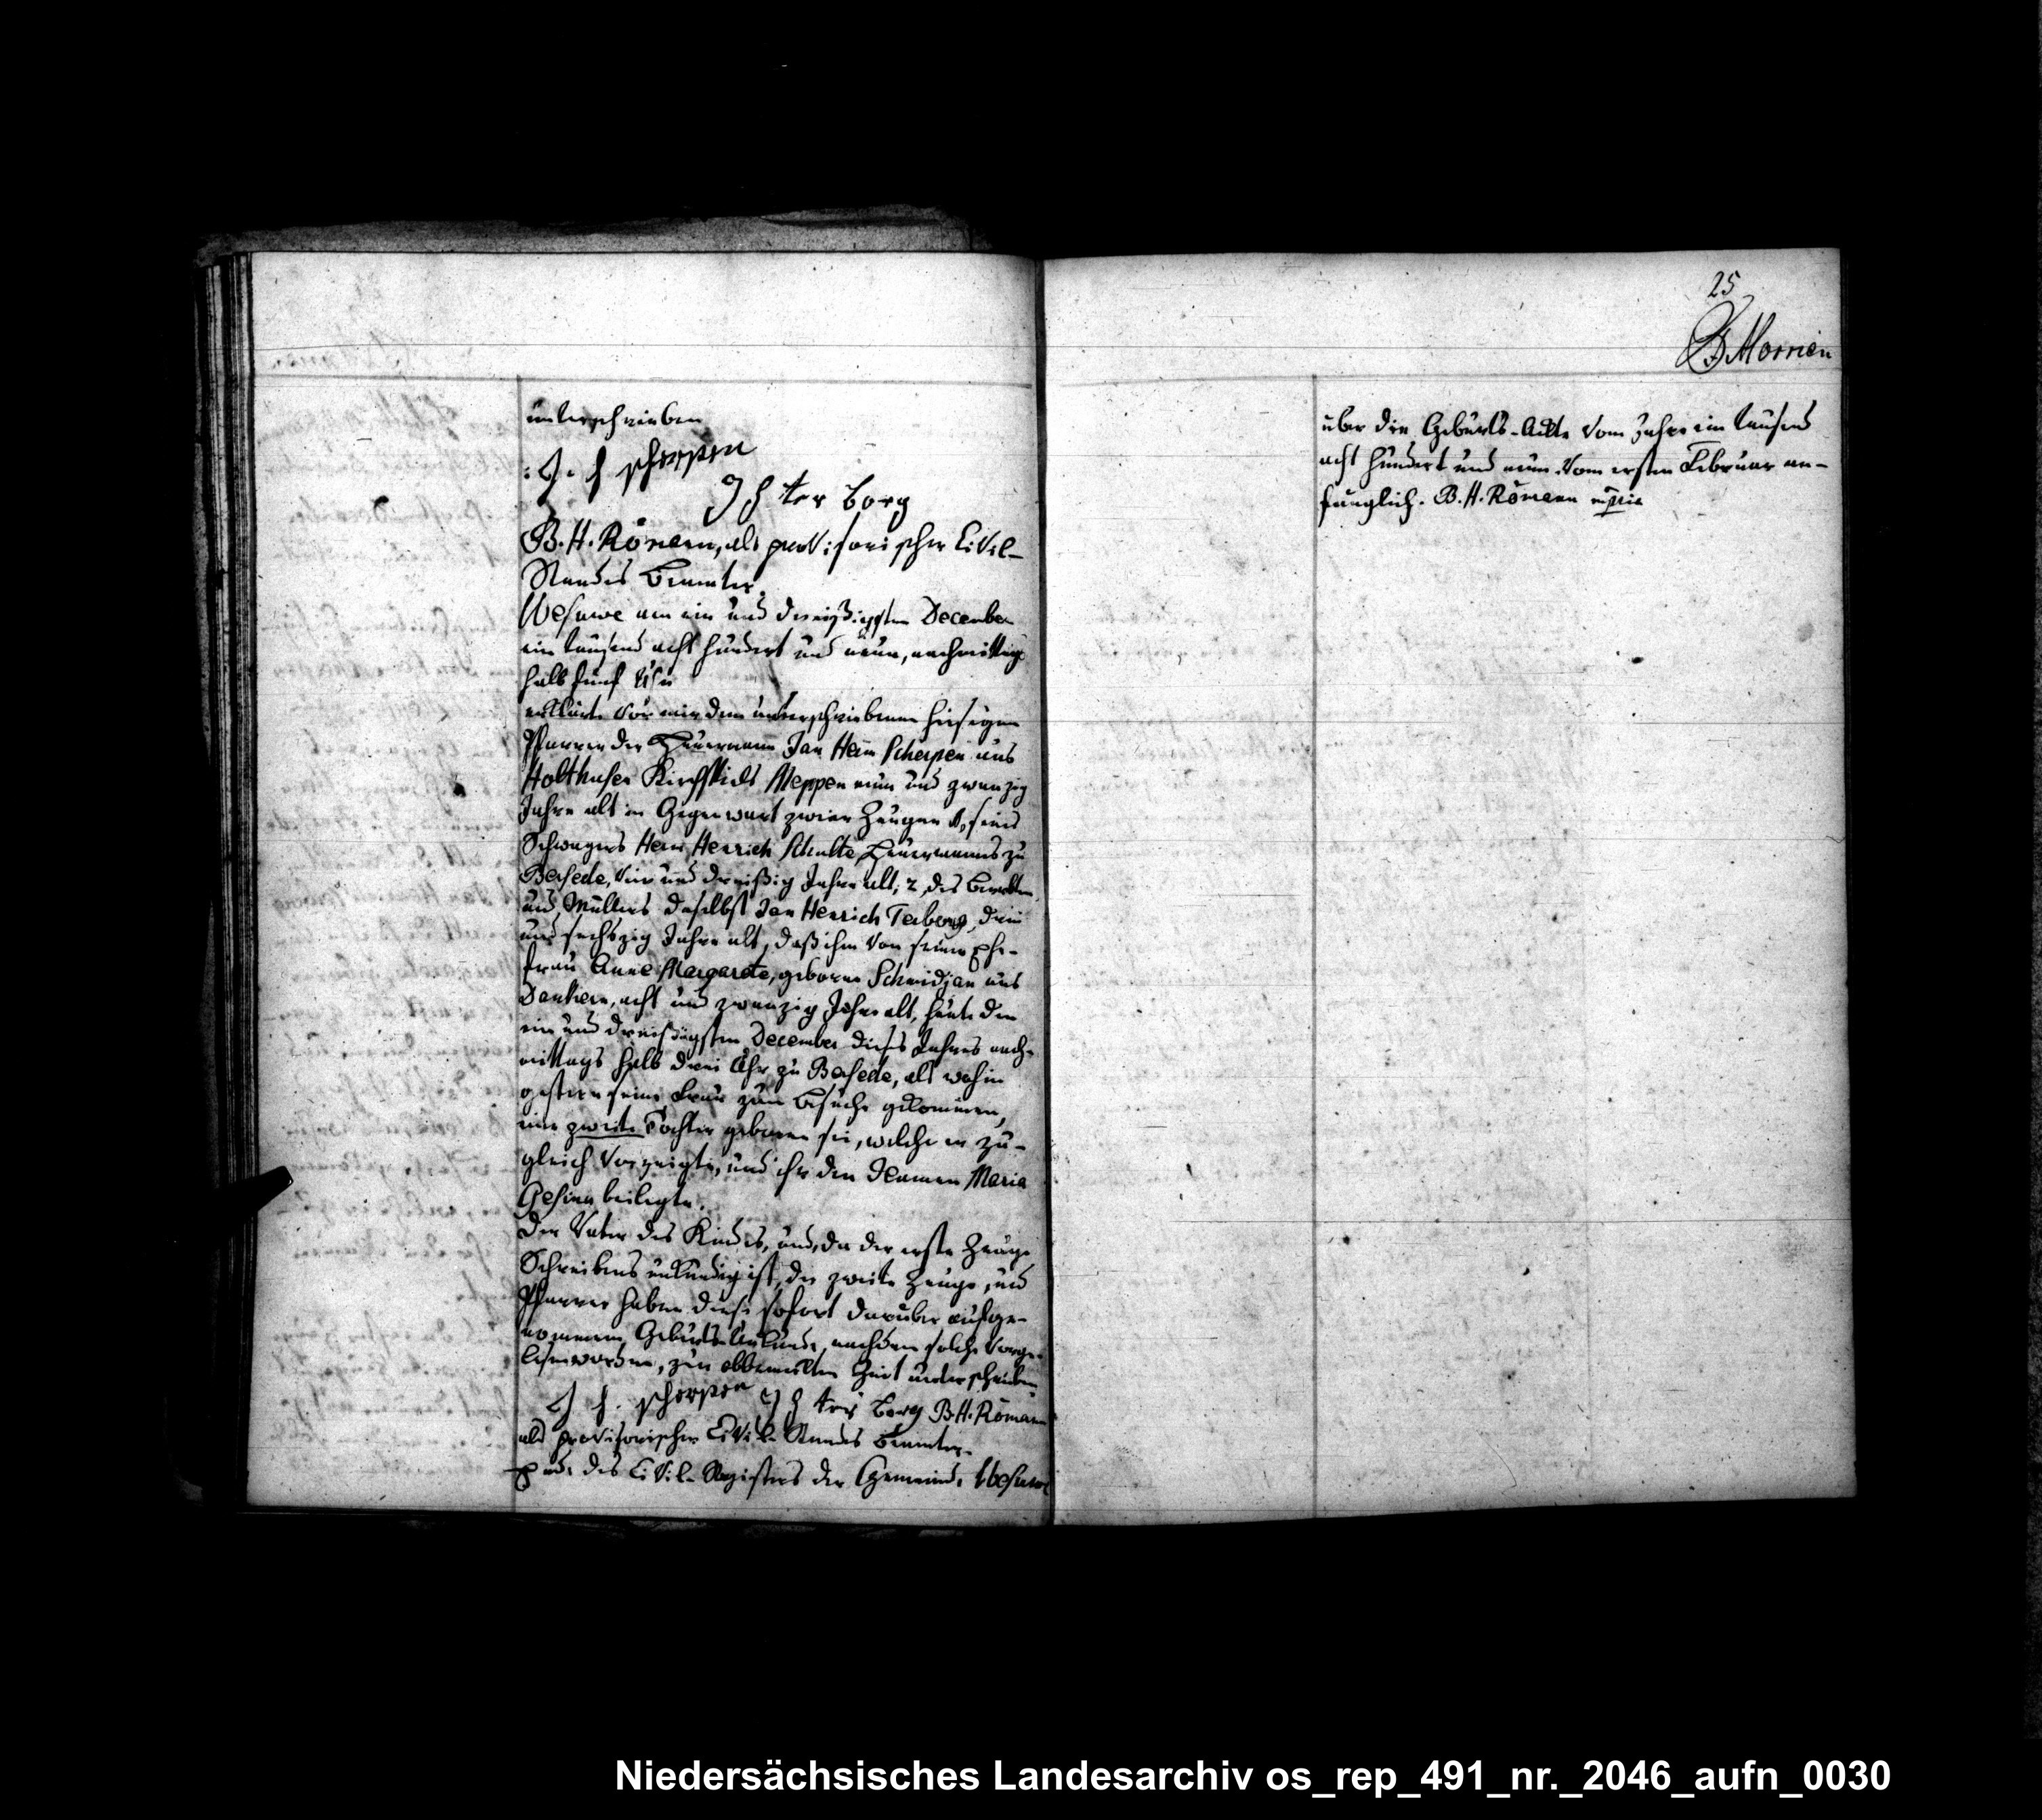 unterschrieben
J. H. scherpen
J H ter borg
B. H. Römann, als provisorischer Civil-
Standes Beamter.
Wesuwe am ein und dreißigsten December
ein tausend acht hundert und neun, nachmittags
halb fünf Uhr
erklärte vor mir dem unterschriebenen hiesigen
Pfarrer der Heuermann Jan Herm Scherpen aus
Holthusen Kirchspiels Meppen neun und zwanzig
Jahre alt in Gegenwart zweier Zeugen 1, seines
Schwagers Herm Henrich Schulte, Heuermanns zu
Versede, vier und dreißig Jahre alt; 2, des
und Müllers daselbst Jan Henrich Terborg, drei
und sechszig Jahre alt, daß ihm von seiner Ehe-
frau Anne Margarete, geborne Schmidjan aus
Dankern, acht und zwanzig Jahre alt, heute den
ein und dreißigsten December dieses Jahres nach-
mittags halb drei Uhr zu Versede, als wohin
gestern seine Frau zum Besuche gekommen,
eine zweite Tochter geboren sei, welche er zu-
gleich vorzeigte, und ihr den Namen Maria
Gesina beilegte.
Der Vater des Kindes, und, da der erste Zeuge
Schreibens unkundig ist, der zweite Zeuge, und
Pfarrer haben diese sofort darüber aufge-
nommene Geburts-Urkunde, nachdem solche vorge-
lesen worden, zur obbemelten Zeit unterschrieben
J H. scherpen J H ter borg B. H. Römann
als provisorischer Civil-Standes Beamter.
Ende des Civil-Registers der Gemeinde Wesuwe
25
B Morrien
über die Geburts-Ackte vom Jahre ein tausend
acht hundert und neun vom ersten Februar an-
fänglich. B. H. Römann mpria
Niedersächsisches Landesarchiv os_rep_491_nr._2046_aufn_0030